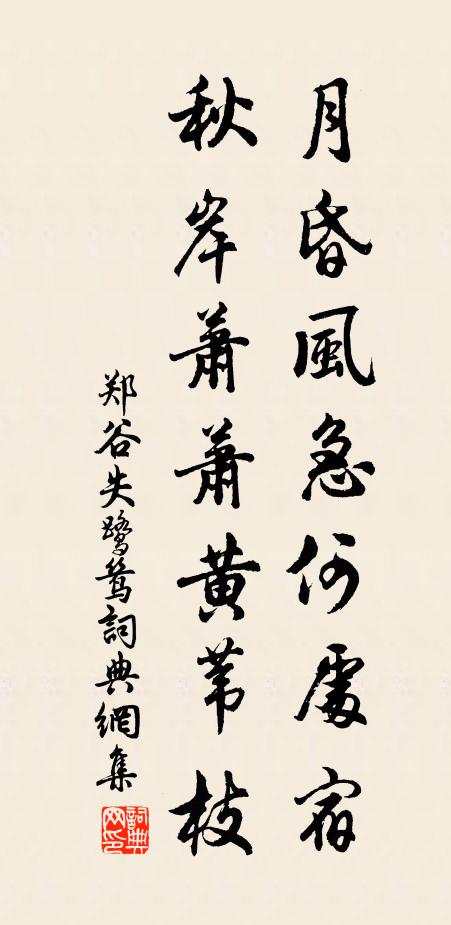 月昏風急何處宿
秋岸蕭蕭黄苇枝
郑谷失鹭鸶詞典網集
詞典网印